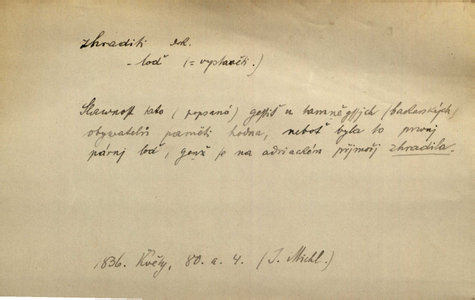 zhraditi dk.
- loď (= vystavěti.)
Slawnost tato (popsaná) gest u tamněgssjch (bakarských)
obywatelů paměti hodna, neboť byla to prwnj
párnj loď, genž se na adriackém přjmořj zhradila.
1836. Květy, 80. a. 4. (J. Michl.)